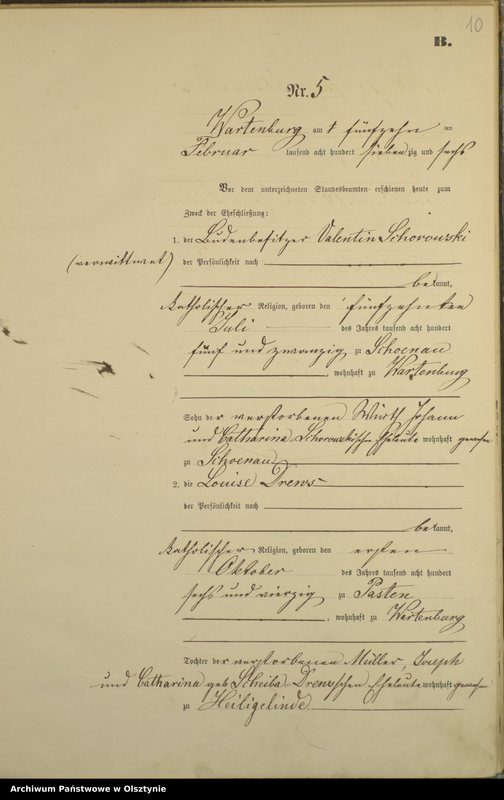 10
B.
Nr. 5
Wartenburg am fünfzehn ten
Februar tausend acht hundert siebenzig und sechs
Vor dem unterzeichneten Standesbeamten erschienen heute zum
Zweck der Eheschließung:
1. der Budenbesitzer Valentin Schorowski
(verwittwet) der Persönlichkeit nach
bekannt,
katholischer Religion, geboren den fünfzehnten
Juli des Jahres tausend acht hundert
fünf und zwanzig zu Schoenau
, wohnhaft zu Wartenburg
Sohn der verstorbenen Wirth Johann
und Catharina Schorowskischen Eheleute wohnhaft gewesen
zu Schoenau
2. die Louise Drews
der Persönlichkeit nach
bekannt,
katholischer Religion, geboren den ersten
Oktober des Jahres tausend acht hundert
sechs und vierzig zu Pasten
, wohnhaft zu Wartenburg
Tochter der verstorbenen Müller, Joseph
und Catharina geb. Scheiba Drewsschen Eheleute wohnhaft gewesen
zu Heiligelinde
Archiwum Państwowe w Olsztynie